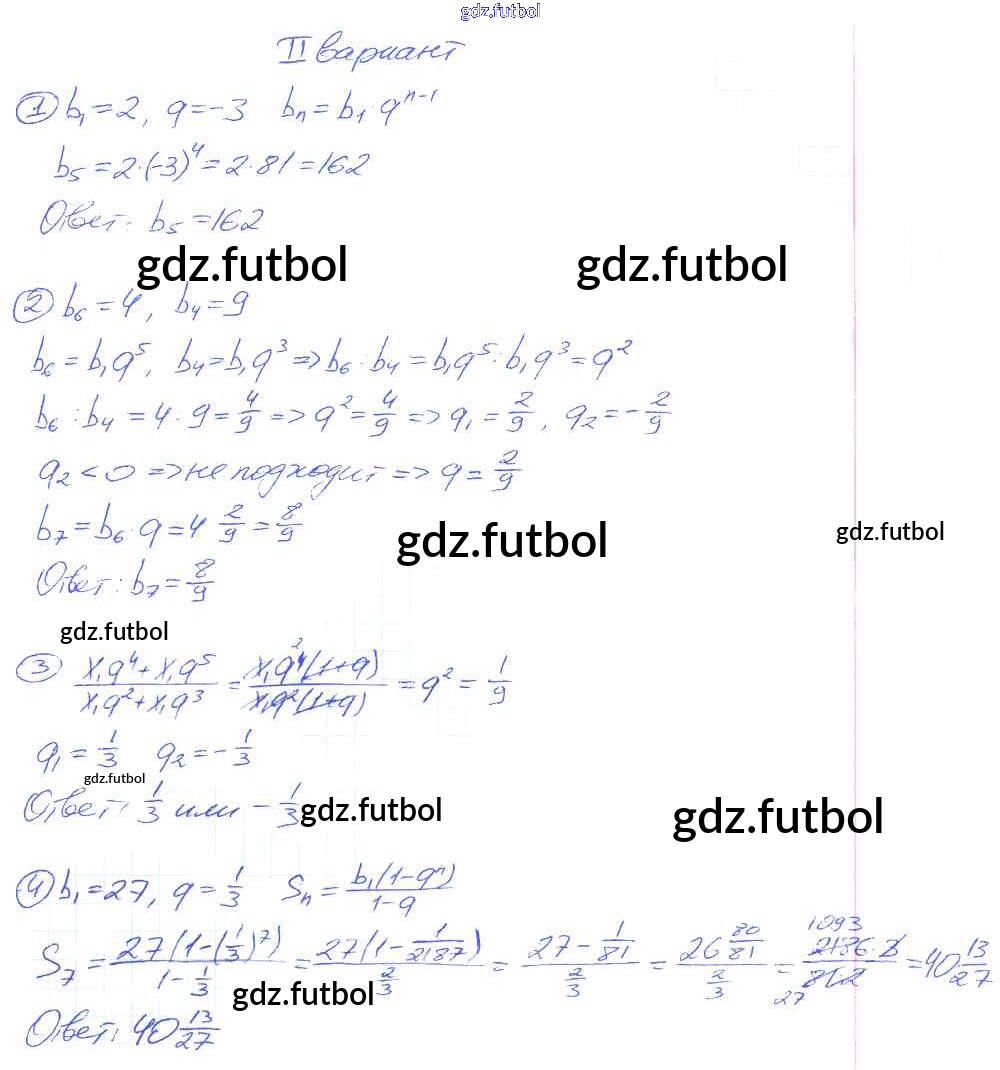 gdz.futbol
II вариант
① b₁ = 2, q = -3 bₙ = b₁ · qⁿ⁻¹
b₅ = 2·(-3)⁴ = 2·81 = 162
Ответ: b₅ = 162
gdz.futbol gdz.futbol
② b₆ = 4, b₄ = 9
b₆ = b₁q⁵, b₄ = b₁q³ => b₆ : b₄ = b₁q⁵ : b₁q³ = q²
b₆ : b₄ = 4 : 9 = 4/9 => q² = 4/9 => q₁ = 2/9, q₂ = -2/9
q₂ < 0 => не подходит => q = 2/9
b₇ = b₆ · q = 4 2/9 = 8/9
gdz.futbol gdz.futbol
Ответ: b₇ = 8/9
gdz.futbol
③ (x₁q⁴ + x₁q⁵)/(x₁q² + x₁q³) = (x₁q⁴(1+q))/(x₁q²(1+q)) = q² = 1/9
q₁ = 1/3 q₂ = -1/3
gdz.futbol
Ответ: 1/3 или -1/3
gdz.futbol gdz.futbol
④ b₁ = 27, q = 1/3 Sₙ = b₁(1-qⁿ)/(1-q)
S₇ = 27(1-(1/3)⁷)/(1-1/3) = 27(1-1/2187)/(2/3) = (27-1/81)/(2/3) = (26 80/81)/(2/3) = 1093/27 = 40 13/27
gdz.futbol
Ответ: 40 13/27